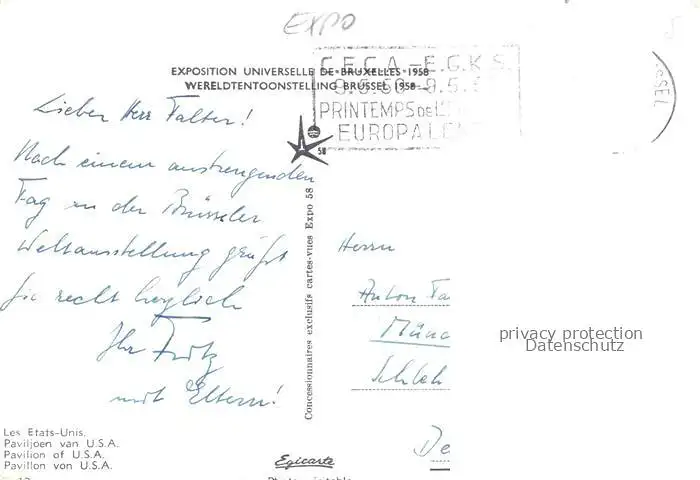 EXPO
EXPOSITION UNIVERSELLE DE BRUXELLES 1958
WERELDTENTOONSTELLING BRUSSEL 1958
C.E.C.A. – E.G.K.S.
9.5.50 – 9.5.5
PRINTEMPS DE L'
EUROPA LE
SSEL
58
Lieber Herr Falter!
Nach einem anstrengenden
Tag in der Brüsseler
Weltausstellung grüßt
Sie recht herzlich
Ihr Fritz
mit Eltern!
Concessionnaires exclusifs cartes-vues Expo 58
Herrn
Anton Fa
Münc
Schleh
De
privacy protection
Datenschutz
Les Etats-Unis.
Paviljoen van U.S.A.
Pavilion of U.S.A.
Pavillon von U.S.A.
Egicarte